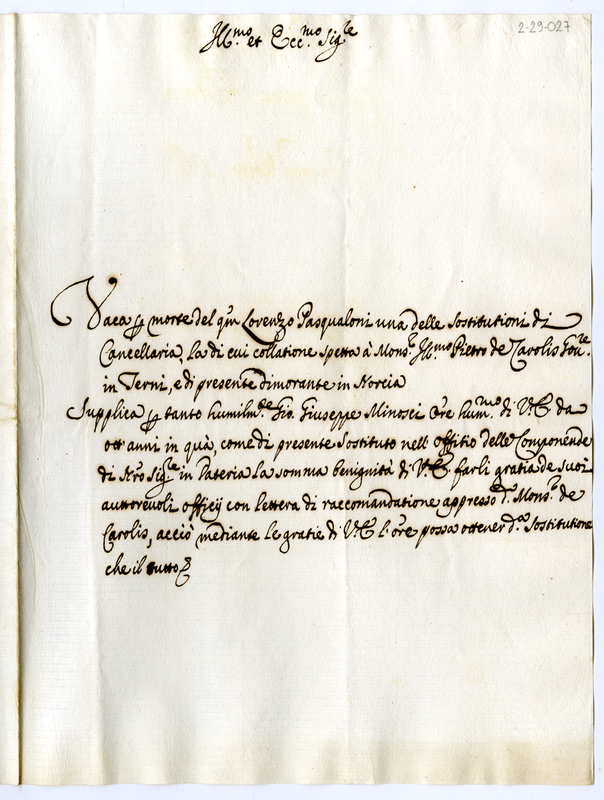 2-29-027
Ill.mo et Ecc.mo Sig.re
Vaca p morte del qm Lorenzo Pasqualoni una delle Sostitutioni di
Cancellaria, la di cui collatione spetta à Mons.r Ill.mo Pietro de Carolis Gou.re
in Terni, e di presente dimorante in Norcia
Supplica p tanto humilm.te Gio. Giuseppe Minosci Ore hum.mo di V.E. da
ott'anni in quà, come di presente Sostituto nell'offitio delle Componende
di Nro Sig.re in Dateria la somma benignità di V.E. farli gratia de suoi
auttoreuoli officij con lettera di raccomandatione appresso d.o Mons.r de
Carolis, acciò mediante le gratie di V.E. l'ore possa ottener d.a Sostitutione
che il tutto